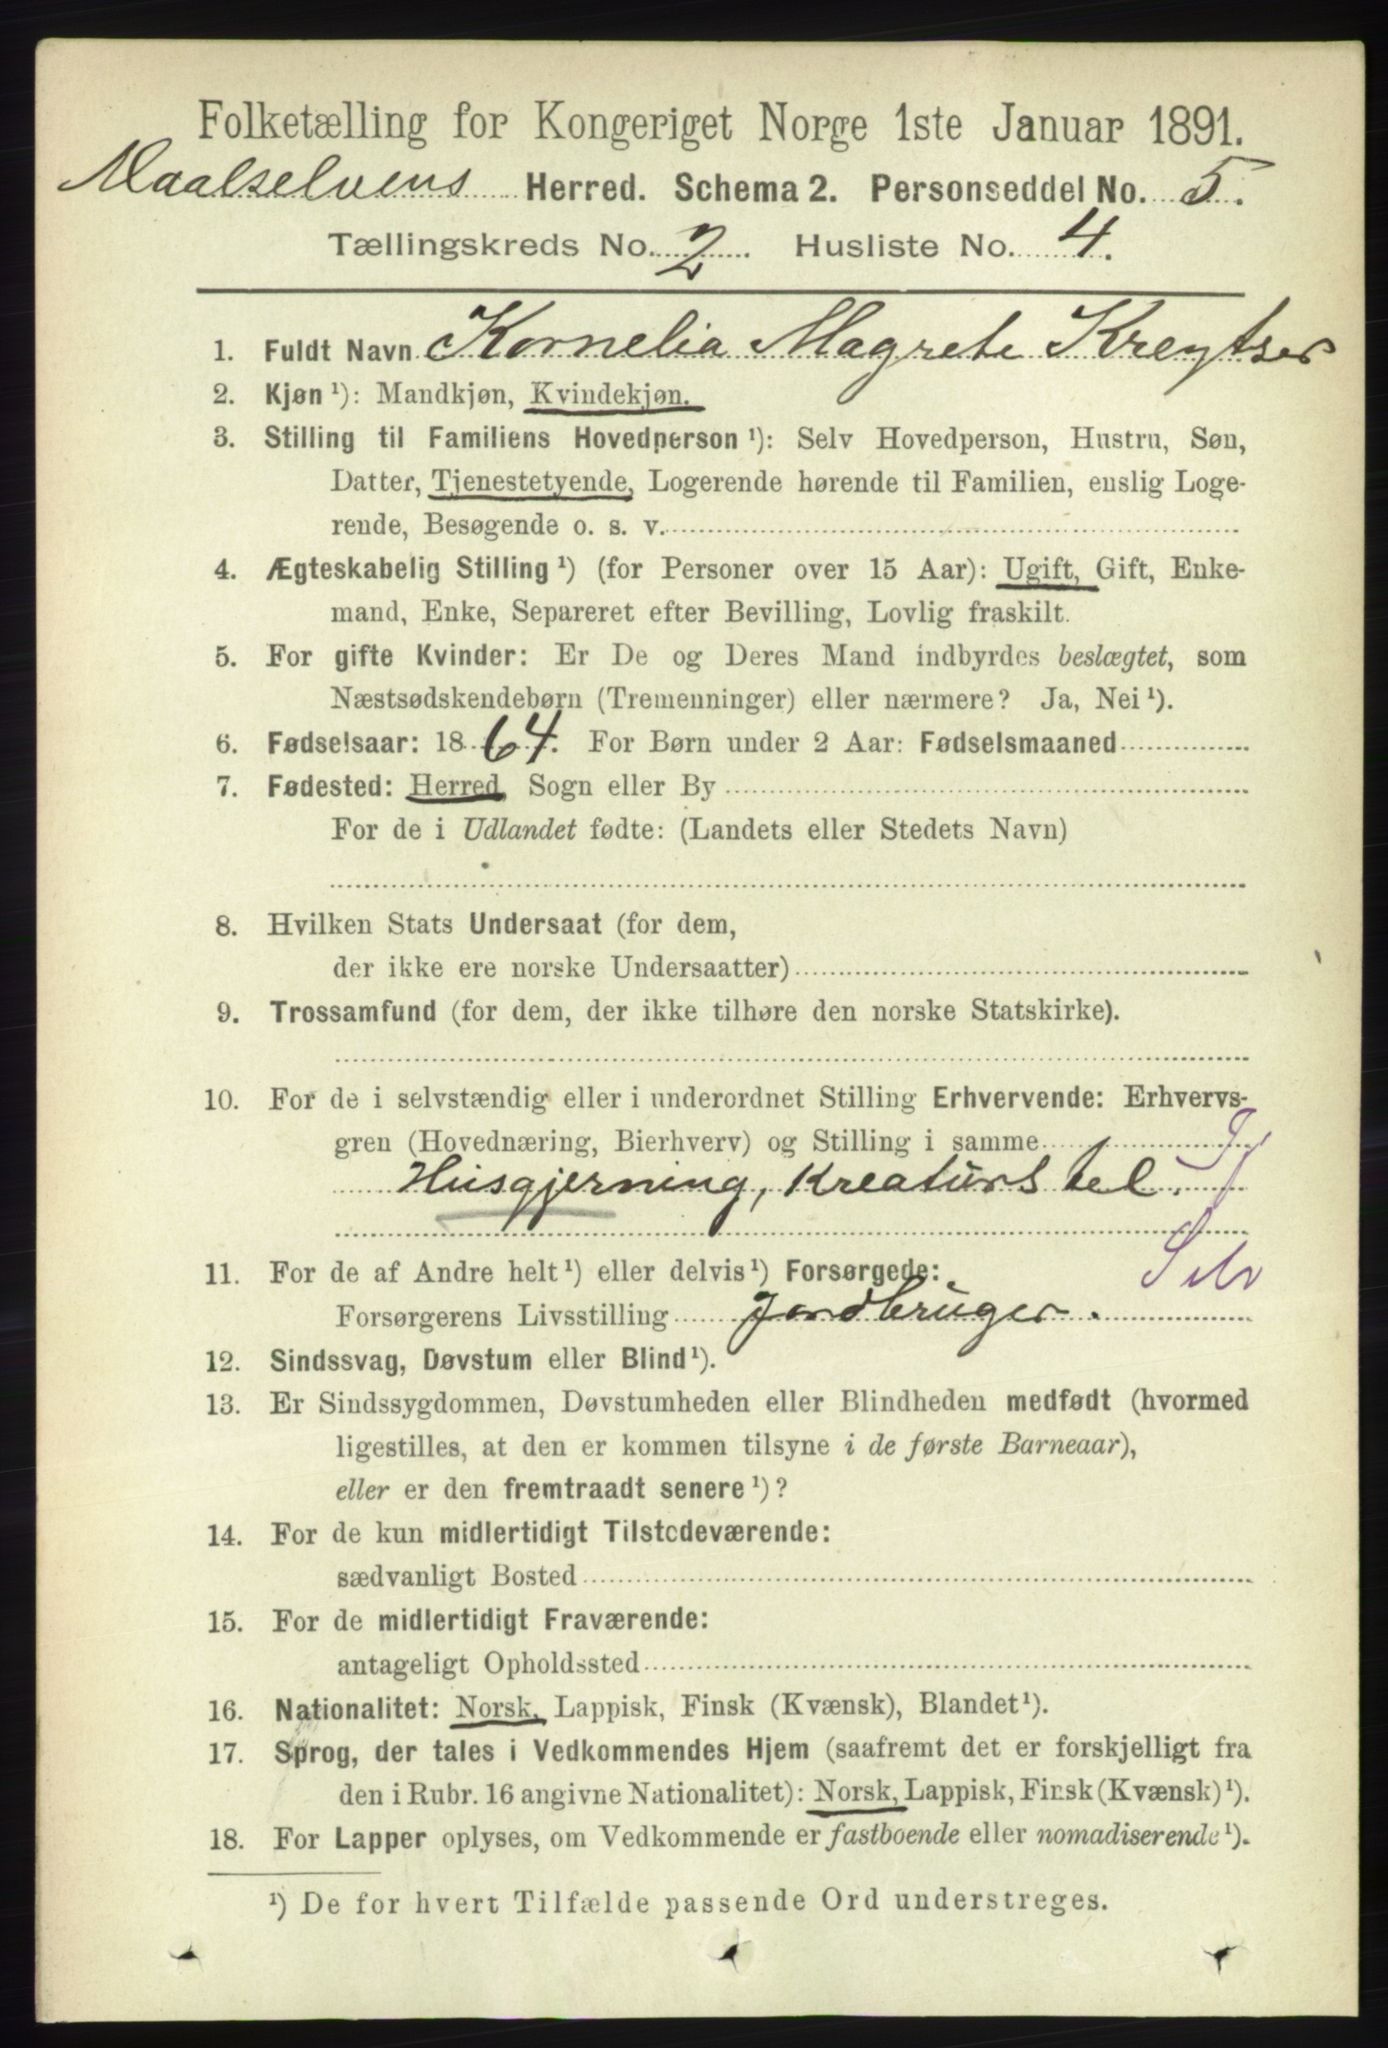 Folketælling for Kongeriget Norge 1ste Januar 1891.
Maalselvens Herred. Schema 2. Personseddel No. 5.
Tællingskreds No. 2 Husliste No. 4.
1. Fuldt Navn Kornelia Magrete Kreytser
2. Kjøn ¹): Mandkjøn, Kvindekjøn.
3. Stilling til Familiens Hovedperson ¹): Selv Hovedperson, Hustru, Søn,
Datter, Tjenestetyende, Logerende hørende til Familien, enslig Loge-
rende, Besøgende o. s. v.
4. Ægteskabelig Stilling ¹) (for Personer over 15 Aar): Ugift, Gift, Enke-
mand, Enke, Separeret efter Bevilling, Lovlig fraskilt.
5. For gifte Kvinder: Er De og Deres Mand indbyrdes beslægtet, som
Næstsødskendebørn (Tremenninger) eller nærmere? Ja, Nei ¹).
6. Fødselsaar: 1864. For Børn under 2 Aar: Fødselsmaaned
7. Fødested: Herred, Sogn eller By
For de i Udlandet fødte: (Landets eller Stedets Navn)
8. Hvilken Stats Undersaat (for dem,
der ikke ere norske Undersaatter)
9. Trossamfund (for dem, der ikke tilhøre den norske Statskirke).
10. For de i selvstændig eller i underordnet Stilling Erhvervende: Erhvervs-
gren (Hovednæring, Bierhverv) og Stilling i samme
Husgjerning, Kreaturstel.
11. For de af Andre helt ¹) eller delvis ¹) Forsørgede:
Selv
Forsørgerens Livsstilling Jordbruger.
12. Sindssvag, Døvstum eller Blind ¹).
13. Er Sindssygdommen, Døvstumheden eller Blindheden medfødt (hvormed
ligestilles, at den er kommen tilsyne i de første Barneaar),
eller er den fremtraadt senere ¹)?
14. For de kun midlertidigt Tilstedeværende:
sædvanligt Bosted
15. For de midlertidigt Fraværende:
antageligt Opholdssted
16. Nationalitet: Norsk, Lappisk, Finsk (Kvænsk), Blandet ¹).
17. Sprog, der tales i Vedkommendes Hjem (saafremt det er forskjelligt fra
den i Rubr. 16 angivne Nationalitet): Norsk, Lappisk, Finsk (Kvænsk) ¹).
18. For Lapper oplyses, om Vedkommende er fastboende eller nomadiserende ¹).
¹) De for hvert Tilfælde passende Ord understreges.